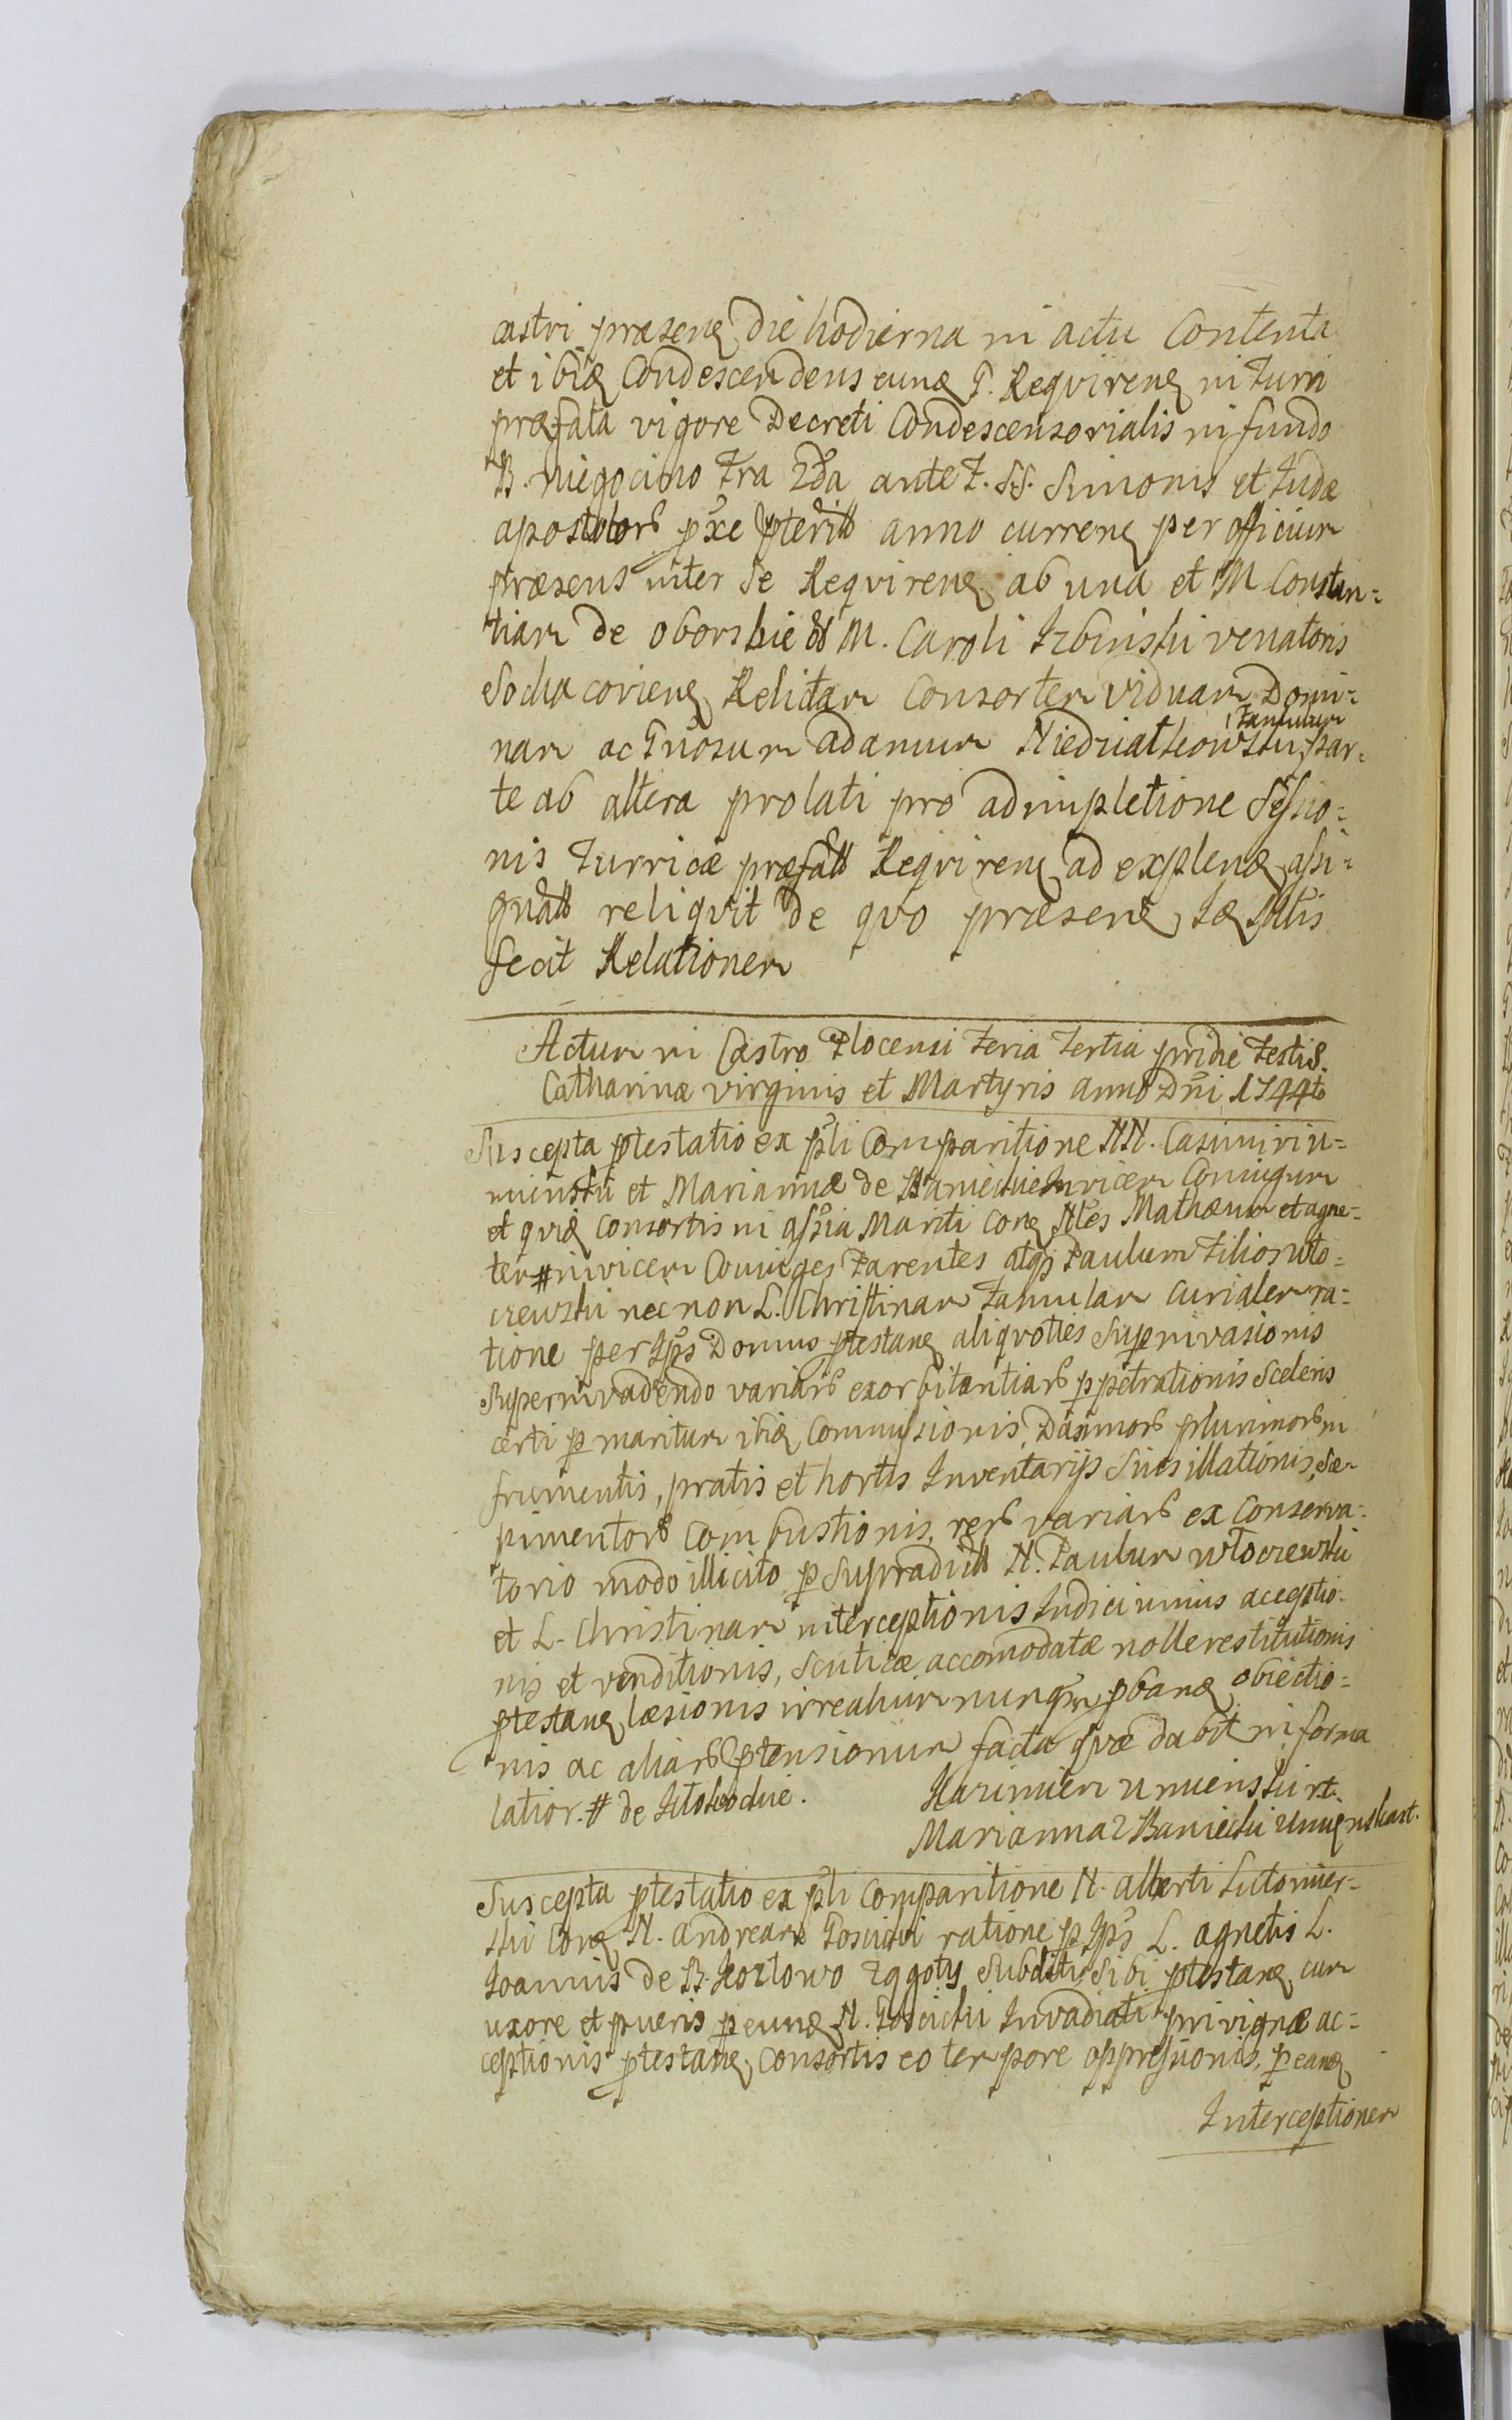 castri præsenꝫ die hodierna in actu Contenta
et ibiꝫ Condescendens eunꝫ G. Reqvirenꝫ in Turri
præfata vigore Decreti Condescensorialis in fundo
B. Niegocino Fra 2da ante F. SS. Simonis et Judæ
apostolorꝫ pxe pteritt anno currenꝫ per officium
præsens inter Se Reqvirenꝫ ab una et M Constan=
tiam de oborskie M. Caroli Izbinski venatoris
Sochacovienꝫ Relictam Consortem viduam Domi=
nam ac Gnosum Adamum Niedrialkowski famulum par=
te ab altera prolati pro adimpletione Sessio=
nis Turricæ præfatt Reqvirenꝫ ad explenꝫ assi=
gnatt reliqvit de qvo præsenꝫ Sæ
fecit Relationem
Actum in Castro Plocensi Feria Tertia pridie Festi S.
Catharinæ virginis et Martyris anno Dñi 1744to
Suscepta ptestatio ex pli Comparitione NN. Casimiri u=
mienski et Mariannæ de Baniechie Invicem Coniugum
et qviꝫ consortis in assia Mariti Conꝫ Nles Mathæum et agne=
tem # invicem Coniuges Parentes atqꝫ Paulum Filium wło=
czewski nec non L. Christinam Famulam Curialem ra=
tione per Ipꝫ Domus ptestanꝫ aliqvoties Superinvasionis
Superinvadendo variarꝫ exorbitantiarꝫ ppetrationis Sceleris
certi p maritum ibiꝫ Commissionis, Damnorꝫ plurimorꝫ in
frumentis, pratis et hortis Inventarijs Suis illationis, Sæ
pimentorꝫ Combustionis, rerꝫ variarꝫ ex Conserva=
torio modo illicito p Supradictt N. Paulum włoczewski
et L. Christinam interceptionis Indici unius aceptio=
nis et venditionis, Scuticæ accomodatæ nolle restitutionis
ptestanꝫ læsionis irrealium nunqm pbanꝫ obiectio=
nis ac aliarꝫ ptensionum facta qvæ dabit in forma
latior. # de
Kazimierz umienski rt.
Marianna z Baniechi umienska rt.
Suscepta ptestatio ex pli Comparitione N. alberti Lutomier=
ski Conꝫ N. Andream Gosciki ratione p Ipꝫ L. agnetis L.
Joannis de B. Kozłowo Zgoty Subditi Sibi ptestanꝫ cum
uxore et pueris p eunꝫ N. Gosciki Invadiati privignæ ac=
ceptionis ptestanꝫ Consortis eo tempore oppressionis, p eanꝫ
Interceptionem